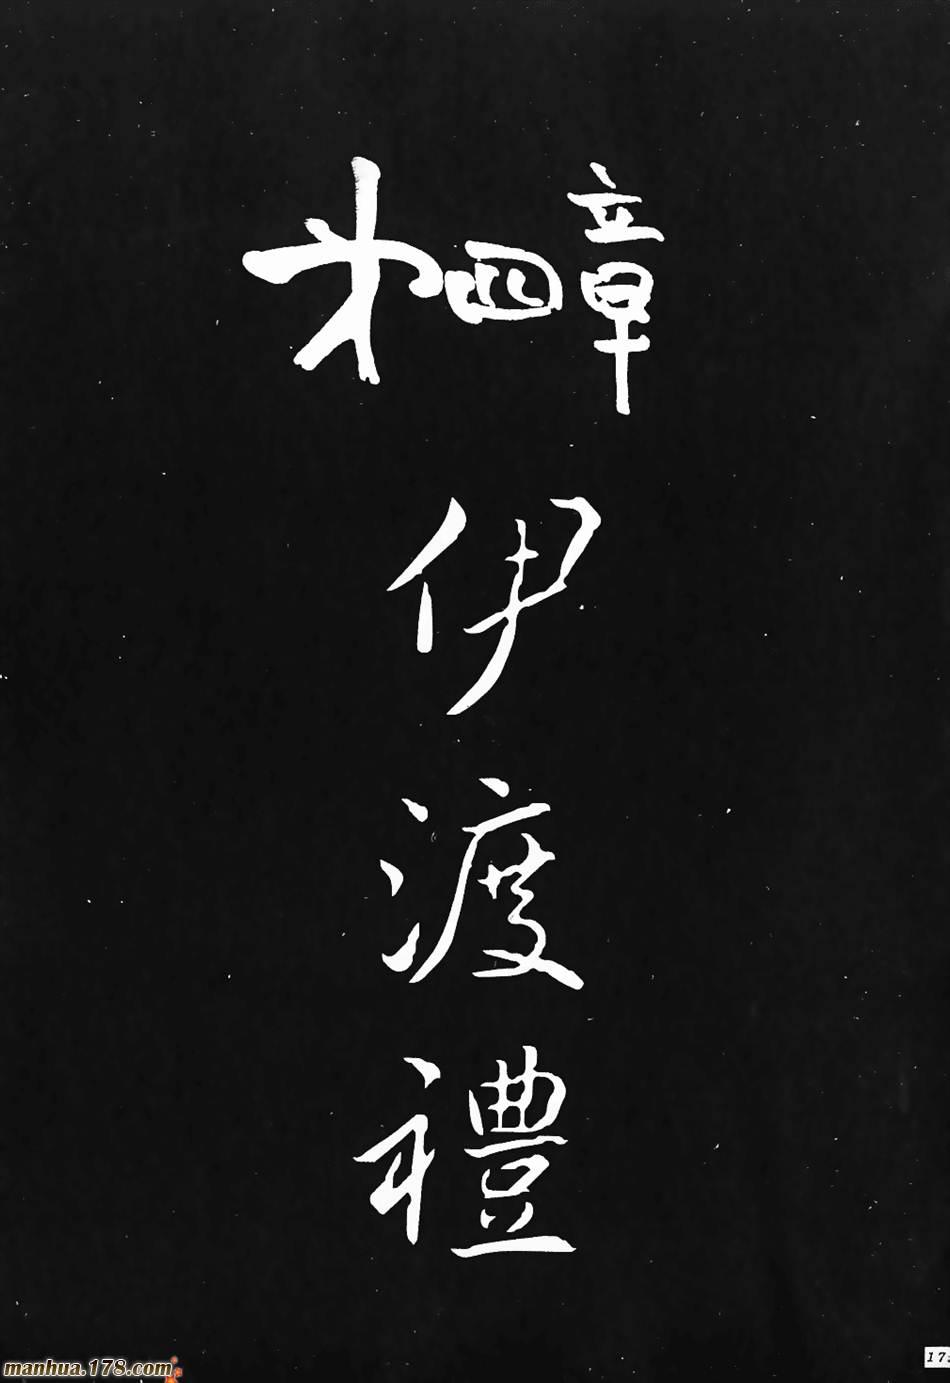 第四章
伊渡禮
manhua.178.com